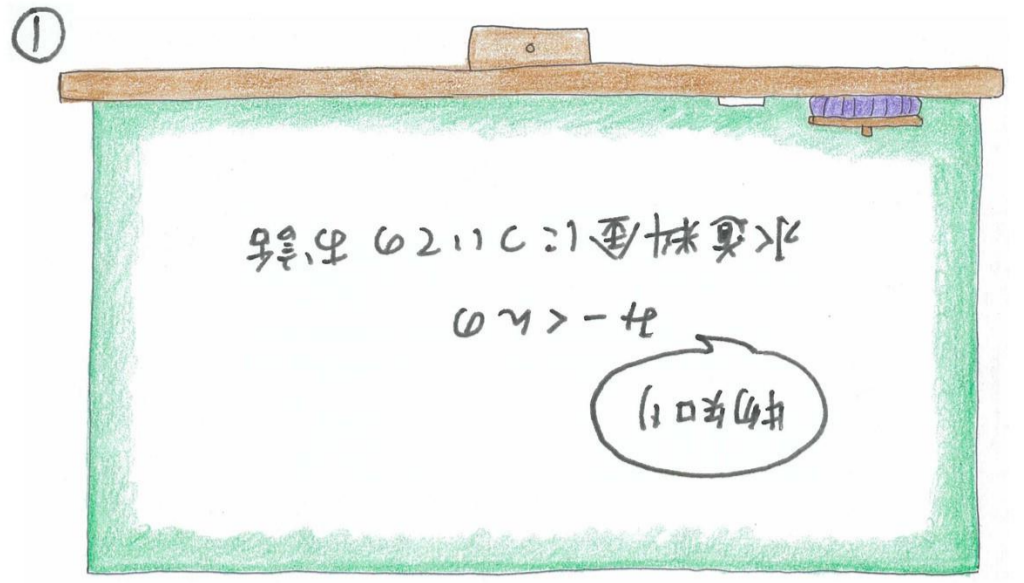 ①
物知り
サーくんの
水道料金についてのお話